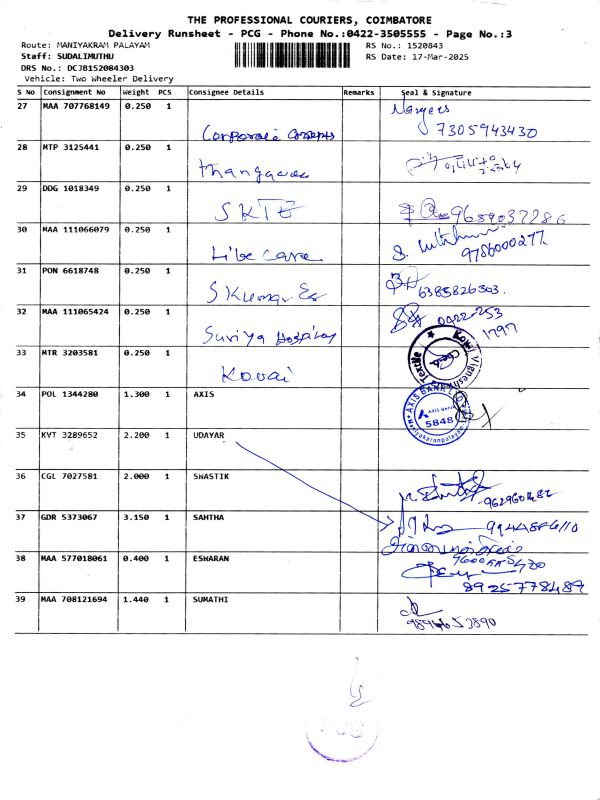 THE PROFESSIONAL COURIERS, COIMBATORE
Delivery Runsheet - PCG - Phone No.:0422-3505555 - Page No.:3
Route: MANIYAKRAM PALAYAM RS No.: 1520843
Staff: SUDALIMUTHU RS Date: 17-Mar-2025
DRS No.: DCJB152084303
Vehicle: Two Wheeler Delivery
S No Consignment No Weight PCS Consignee Details Remarks Seal & Signature
27 MAA 707768149 0.250 1
Corporate Concepts 7305943430
28 MTP 3125441 0.250 1
Thangavel
29 DDG 1018349 0.250 1
SKTE 9659037286
30 MAA 111066079 0.250 1
Life care 9786000277
31 PON 6618748 0.250 1
S Kumar Es 6385826303.
32 MAA 111065424 0.250 1 0422-253
Suriya Hospital 1797
33 MTR 3203581 0.250 1 Kowi Vignesh Textile
Kovai
34 POL 1344280 1.300 1 AXIS AXIS BANK
AXIS BANK
5848
35 KVT 3289652 2.200 1 UDAYAR
36 CGL 7027581 2.000 1 SWASTIK
37 GDR 5373067 3.150 1 SAHTHA
38 MAA 577018061 0.400 1 ESWARAN
8925778489
39 MAA 708121694 1.440 1 SUMATHI